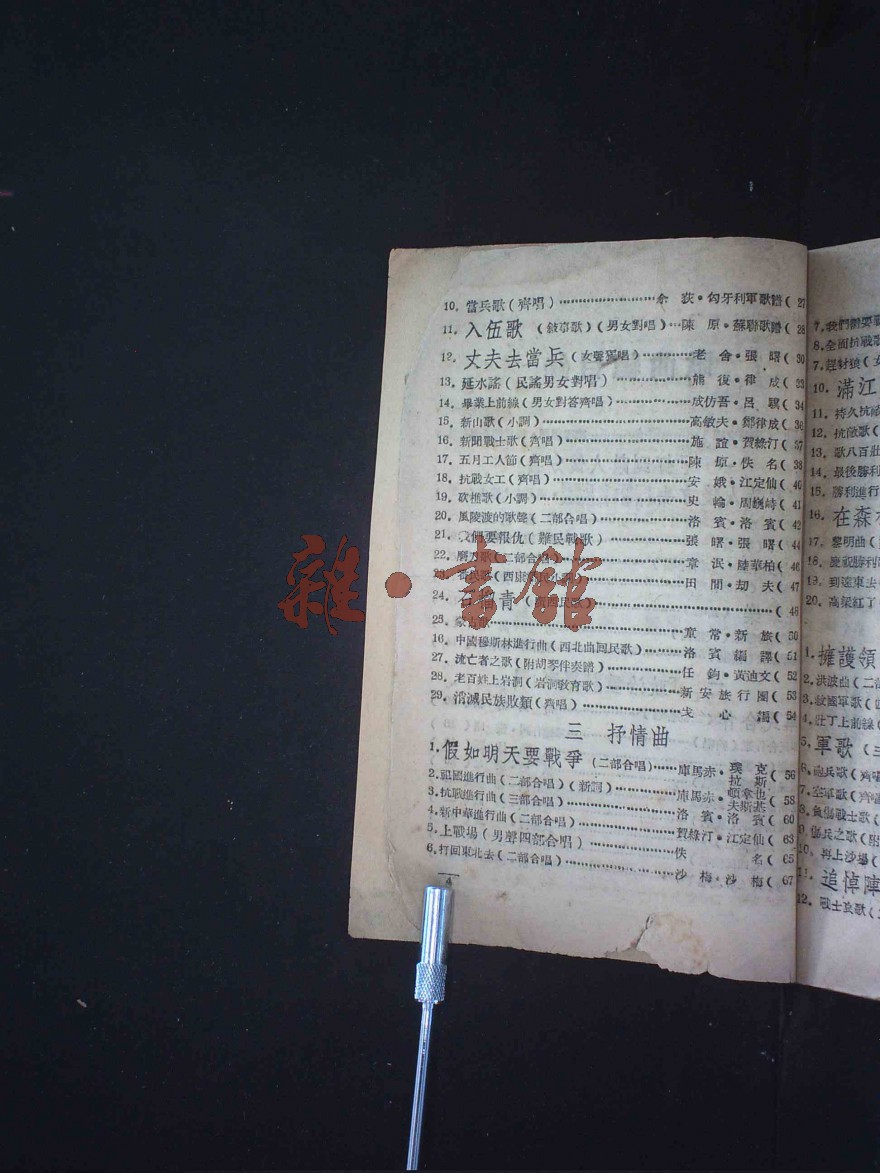 10. 當兵歌(齊唱)…………余 荻·匈牙利軍歌譜( 27
11. 入伍歌 (敍事歌)(男女對唱)…陳 原·蘇聯歌譜( 28
12. 丈夫去當兵(女聲獨唱)…………老 舍·張 曙( 30
13. 延水謠(民謠男女對唱)…………熊 復·律 成( 33
14. 畢業上前線(男女對答齊唱)…………成仿吾·呂 驥( 34
15. 新山歌(小調)…………高敏夫·鄭律成( 36
16. 新聞戰士歌(齊唱)…………施 誼·賀綠汀( 37
17. 五月工人節(齊唱)…………陳 原·佚 名( 38
18. 抗戰女工(齊唱)…………安 娥·江定仙( 40
19. 砍樵歌(小調)…………史 輪·周巍峙( 41
20. 風陵渡的歌聲(二部合唱)…………洛 賓·洛 賓( 42
21. 我們要報仇(難民戰歌)…………張 曙·張 曙( 44
22. 磨刀歌(二部合唱)…………章 泯·陸華柏( 46
…………田 間·劫 夫( 47
24. 石榴青…………( 48
25.…………章 常·新 族( 50
16. 中國穆斯林進行曲(西北曲回民歌)…………洛 賓 編 譯( 51
27. 流亡者之歌(附胡琴伴奏譜)…………任 鈞·黃迪文( 52
28. 老百姓上岩洞(岩洞教育歌)…………新安旅行團( 53
29. 消滅民族敗類(齊唱)…………戈 心 ( 54
三 抒情曲
1. 假如明天要戰爭(二部合唱)……庫馬赤·璞拉 克斯( 56
2. 祖國進行曲(二部合唱)(新詞)…………庫馬赤·頓拿也夫斯基( 58
3. 抗戰進行曲(三部合唱)…………洛 賓·洛 賓( 60
4. 新中華進行曲(二部合唱)…………賀綠汀·江定仙( 63
5. 上戰場(男聲四部合唱)…………佚 名( 65
6. 打回東北去(二部合唱)…………沙 梅·沙 梅( 67
4
7. 我們需要戰
8. 全面抗戰歌
7. 趕豺狼(女
10. 滿江
11. 持久抗敵
12. 抗敵歌(
13. 歌八百壯
14. 最後勝利
15. 勝利進行
16. 在森林
17. 黎明曲(
18. 慶祝勝利
19. 到遠東去
20. 高粱紅了
1. 擁護領
2. 洪波曲(二
3. 救國軍歌(
4. 壯丁上前線(
5. 軍歌(三
6. 砲兵歌(齊唱
7. 空軍歌(齊唱
8. 負傷戰士歌(
9. 傷兵之歌(附
10. 再上沙場(
11. 追悼陣
12. 戰士哀歌(
雜·書館